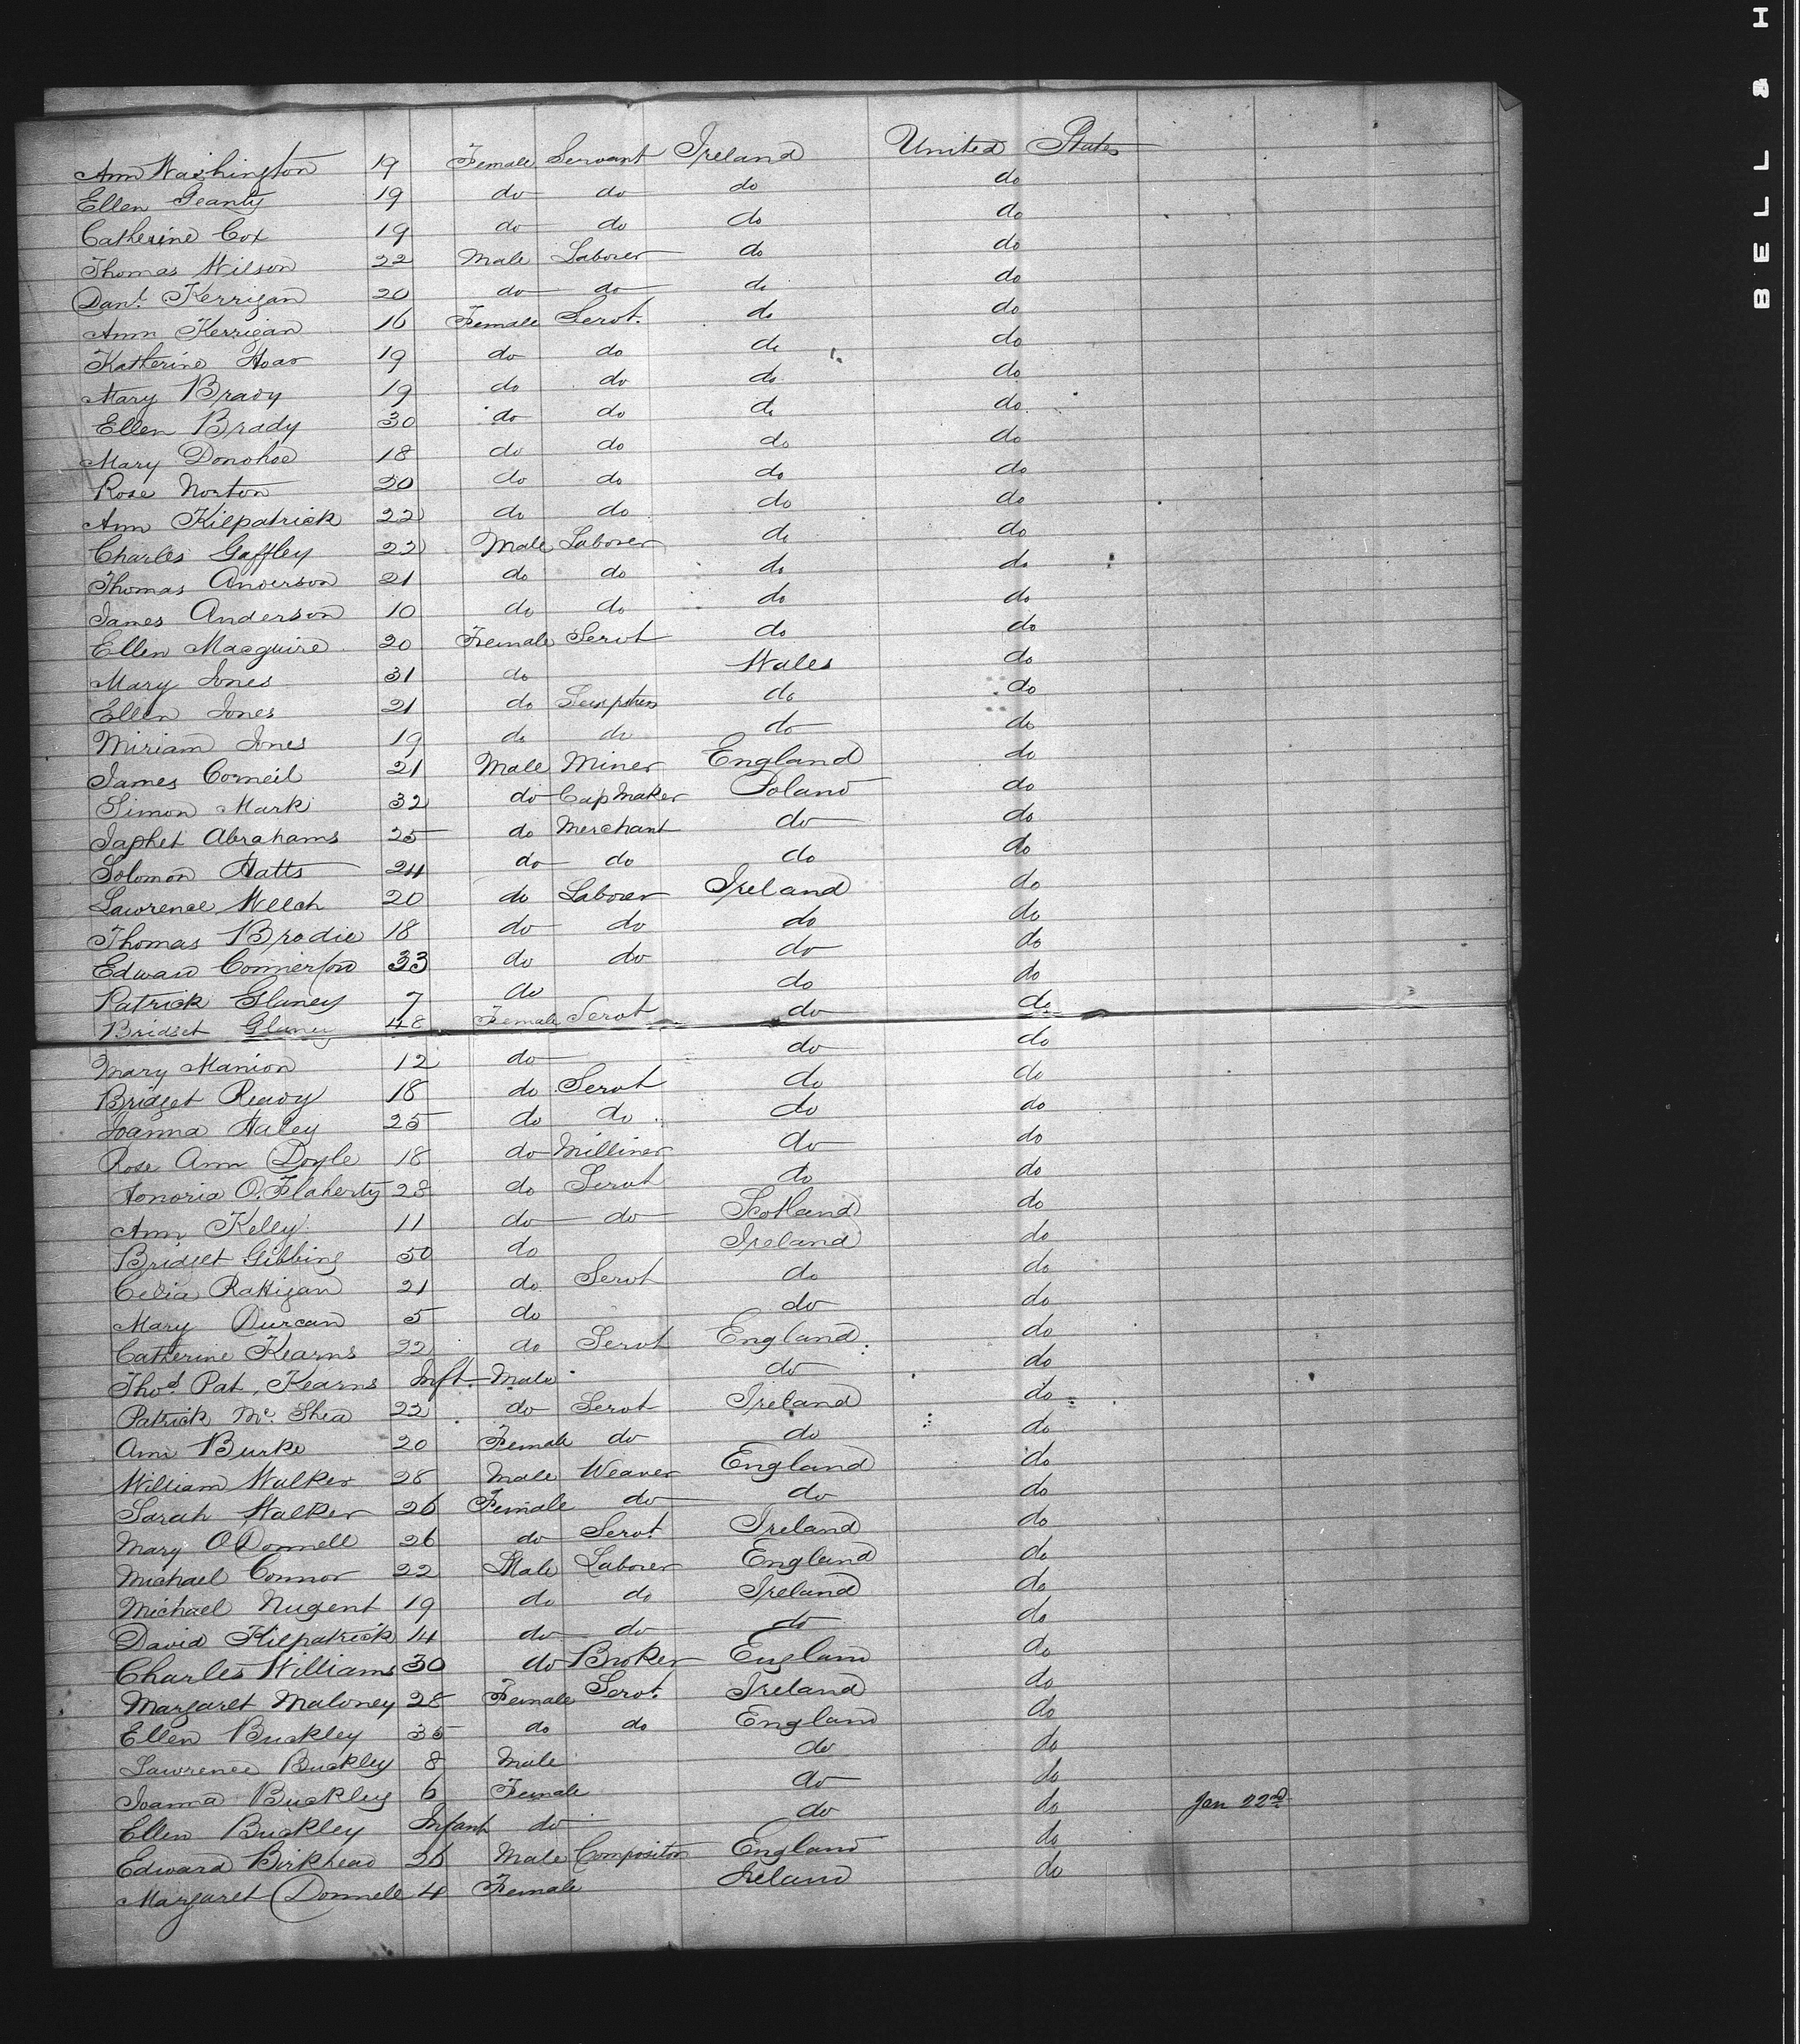 Ann Washington 19 Female Servant Ireland United States
Ellen Geanty 19 do do do do
Catherine Cox 19 do do do do
Thomas Wilson 22 Male Laborer do do
Danl. Kerrigan 20 do do do do
Ann Kerrigan 16 Female Servt. do do
Katherine Hoar 19 do do do do
Mary Brady 19 do do do do
Ellen Brady 30 do do do do
Mary Donohoe 18 do do do do
Rose Norton 20 do do do do
Ann Kilpatrick 22 do do do do
Charles Gaffley 22 Male Laborer do do
Thomas Anderson 21 do do do do
James Anderson 10 do do do do
Ellen Macguire 20 Female Servt do do
Mary Jones 31 do Wales do
Ellen Jones 21 do do do
Miriam Jones 19 do do do do
James Corneil 21 Male Miner England do
Simon Mark 32 do Cap Maker Poland do
Japhet Abrahams 25 do Merchant do do
Solomon Hatts 24 do do do do
Lawrence Welch 20 do Laborer Ireland do
Thomas Brodie 18 do do do do
Edward Commerford 33 do do do do
Patrick Glaney 7 do do do
Bridget Glaney 48 Female Servt do do
Mary Manion 12 do do do
Bridget Reavy 18 do Servt do do
Joanna Haley 25 do do do do
Rose Ann Doyle 18 do Milliner do do
Honoria O.Flaherty 28 do Servt do do
Ann Kelly 11 do do Scotland do
Bridget Gibbins 50 do Ireland do
Celia Rattigan 21 do Servt do do
Mary Durcan 5 do do do
Catherine Kearns 22 do Servt England do
Thos. Pat. Kearns Inft. Male do do
Patrick Mc. Shea 22 do Servt Ireland do
Ann Burke 20 Female do do do
William Walker 28 Male Weaver England do
Sarah Walker 26 Female do do do
Mary ODonnell 26 do Servt. Ireland do
Michael Connor 22 Male Laborer England do
Michael Nugent 19 do do Ireland do
David Kilpatrick 14 do do do do
Charles Williams 30 do Broker England do
Margaret Maloney 28 Female Servt. Ireland do
Ellen Buckley 35 do do England do
Lawrence Buckley 8 Male do do
Joanna Buckley 6 Female do do
Ellen Buckley Infant do do do Jan 22nd
Edward Birkhead 26 Male Compositor England do
Margaret Donnele 4 Female Ireland do
BELL & H